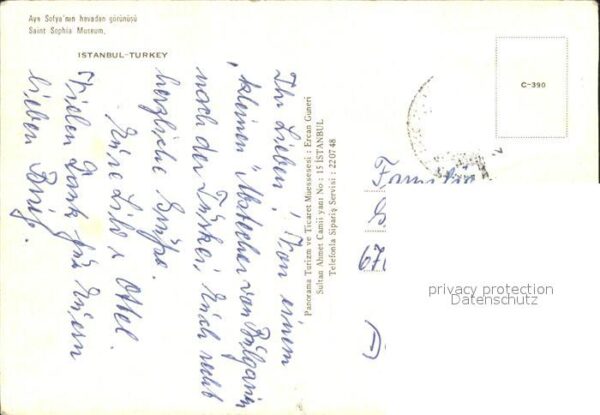 Aya Sofya'nın havadan görünüşü
Saint Sophia Museum.
ISTANBUL-TURKEY
C-390
Ihr Lieben! Von einem
kleinen "Abstecher von Bulgarien
nach der Türkei, Euch recht
herzliche Grüße.
Eure Lilo + Ottel.
Vielen Dank für Euern
lieben Brief.
Panorama Turizm ve Ticaret Muessesesi : Ercan Guneri
Sultan Ahmet Camii yanı No : 15 İSTANBUL
Telefonla Sipariş Servisi : 220748
Familie
67
privacy protection
Datenschutz